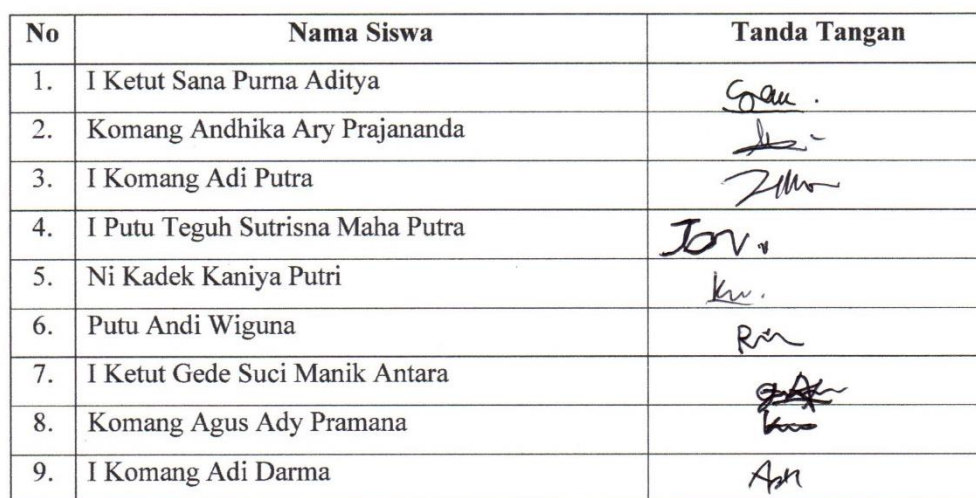 No Nama Siswa Tanda Tangan
1. I Ketut Sana Purna Aditya
2. Komang Andhika Ary Prajananda
3. I Komang Adi Putra
4. I Putu Teguh Sutrisna Maha Putra
5. Ni Kadek Kaniya Putri
6. Putu Andi Wiguna
7. I Ketut Gede Suci Manik Antara
8. Komang Agus Ady Pramana
9. I Komang Adi Darma